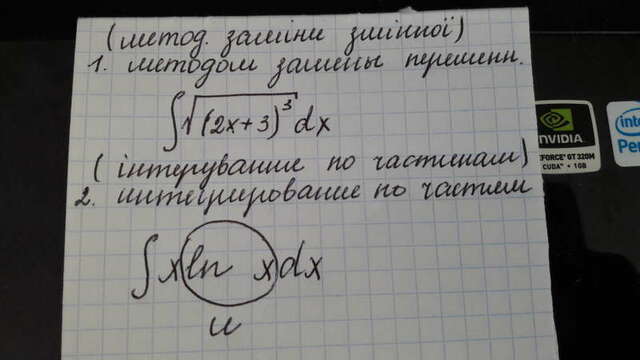 (метод. заміни змінної)
1. методом замены переменн.
∫√(2x+3)³ dx
(інтегрування по частинам)
2. интегрирование по частям
∫x ln x dx
u
NVIDIA
GEFORCE GT 320M
CUDA™ • 1GB
intel